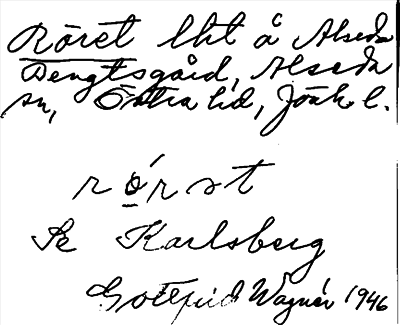 Röret lht å Alseda
Bengtsgård, Alseda
sn, Östra hd, Jönk. l.
rö́rət
Se Karlsberg
Gottfrid Wagnér 1946